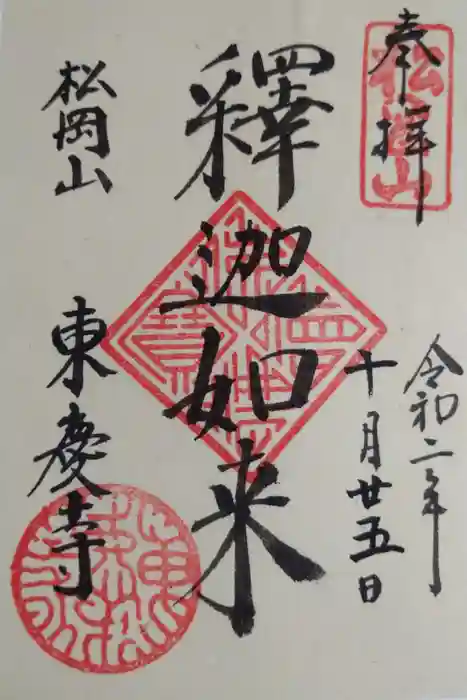 奉拝
松岡山
令和二年
十月廿五日
釋迦如来
松岡山
東慶寺